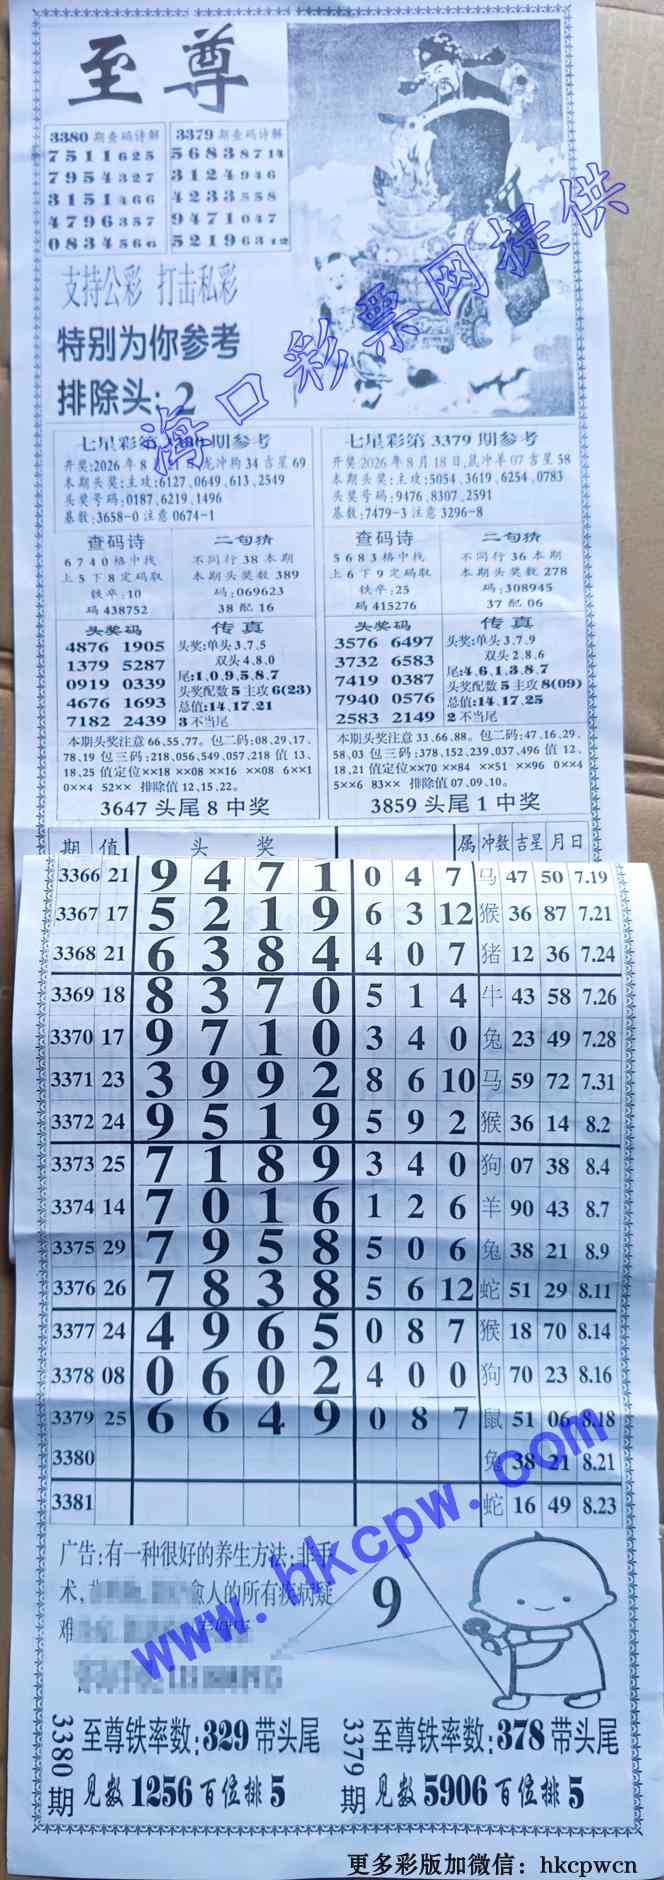 至尊
3380期查码诗解
7511625
7954327
3151466
4796357
0834566
3379期查码诗解
56838714
3124946
4233558
9471047
52196312
支持公彩 打击私彩
特别为你参考
排除头:2
海口彩票网提供
七星彩第3380期参考
本期头奖:主攻:6127,0649,613,2549
头奖号码:0187,6219,1496
基数:3658-0 注意0674-1
七星彩第3379期参考
开奖:2026年8月18日,鼠冲羊07吉星58
本期头奖:主攻:5054,3619,6254,0783
头奖号码:9476,8307,2591
基数:7479-3 注意3296-8
查码诗
6740格中找
上5下8定码取
铁卒:10
码438752
二句猜
不同行38本期
本期头奖数389
码:069623
38配16
查码诗
5683格中找
上6下9定码取
铁卒:25
码415276
二句猜
不同行36本期
本期头奖数278
码:308945
37配06
头奖码
4876 1905
1379 5287
0919 0339
4676 1693
7182 2439
传真
头奖:单头3.7.5
双头4.8.0
尾:1,0,9,5,8,7
头奖配数5主攻6(23)
总值:14,17,21
3不当尾
头奖码
3576 6497
3732 6583
7419 0387
7940 0576
2583 2149
传真
头奖:单头3.7.9
双头2.8.6
尾:4,6,1,3,8,7
头奖配数5主攻8(09)
总值:14,17,25
2不当尾
本期头奖注意66,55,77。包二码:08,29,17,
78,19包三码:218,056,549,057,218值13,
18,25值定位××18 ××08 ××16 ××08 6××1
0××4 52×× 排除值12,15,22。
3647头尾8中奖
本期头奖注意33,66,88。包二码:47,16,29,
58,03包三码:378,152,239,037,496值12,
18,21值定位××70 ××84 ××51 ××96 0××4
5××6 83×× 排除值07,09,10。
3859头尾1中奖
期 值 头奖 属 冲数 吉星 月日
3366 21 9 4 7 1 0 4 7 马 47 50 7.19
3367 17 5 2 1 9 6 3 12 猴 36 87 7.21
3368 21 6 3 8 4 4 0 7 猪 12 36 7.24
3369 18 8 3 7 0 5 1 4 牛 43 58 7.26
3370 17 9 7 1 0 3 4 0 兔 23 49 7.28
3371 23 3 9 9 2 8 6 10 马 59 72 7.31
3372 24 9 5 1 9 5 9 2 猴 36 14 8.2
3373 25 7 1 8 9 3 4 0 狗 07 38 8.4
3374 14 7 0 1 6 1 2 6 羊 90 43 8.7
3375 29 7 9 5 8 5 0 6 兔 38 21 8.9
3376 26 7 8 3 8 5 6 12 蛇 51 29 8.11
3377 24 4 9 6 5 0 8 7 猴 18 70 8.14
3378 08 0 6 0 2 4 0 0 狗 70 23 8.16
3379 25 6 6 4 9 0 8 7 鼠 51 06 8.18
3380 兔 38 21 8.21
3381 蛇 16 49 8.23
www.hkcpw.com
广告:有一种很好的养生方法:非手
术, 愈人的所有疾病疑
难
9
3380期
至尊铁率数:329带头尾
见数1256百位排5
3379期
至尊铁率数:378带头尾
见数5906百位排5
更多彩版加微信:hkcpwcn